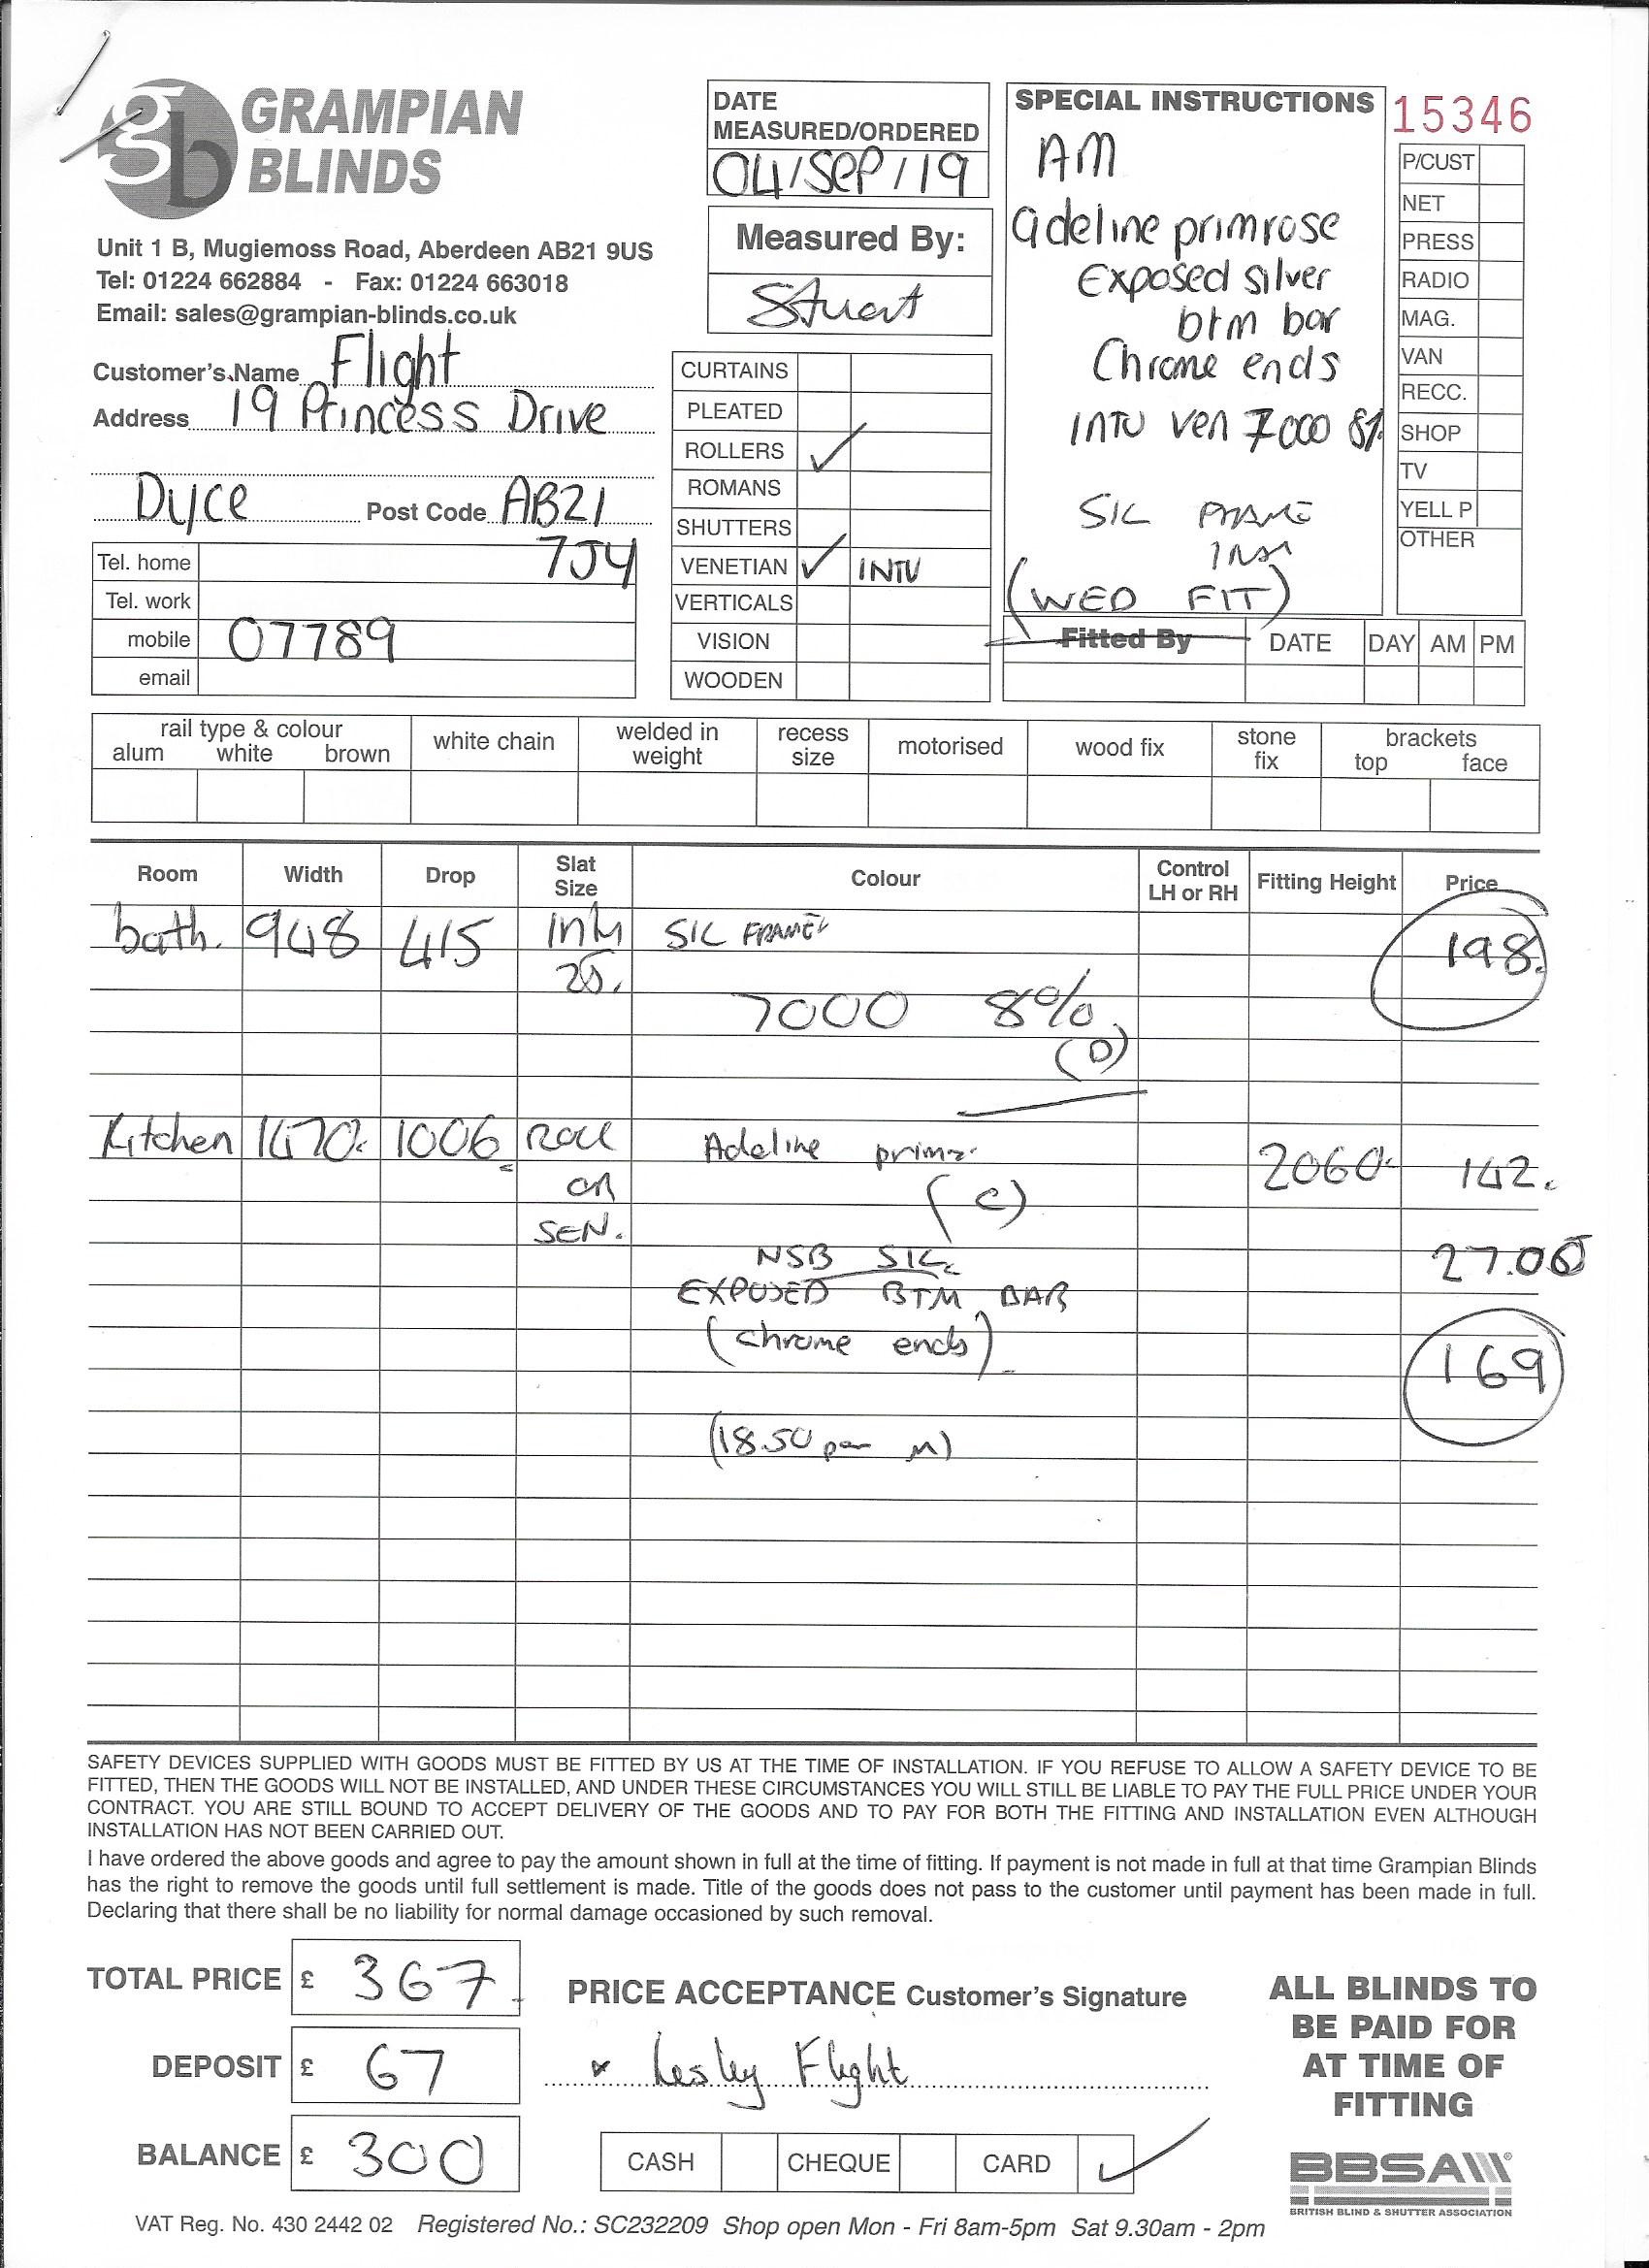 GRAMPIAN
BLINDS
gb
Unit 1 B, Mugiemoss Road, Aberdeen AB21 9US
Tel: 01224 662884 - Fax: 01224 663018
Email: sales@grampian-blinds.co.uk
Customer's Name Flight
Address 19 Princess Drive
Dyce Post Code AB21
7J4
Tel. home
Tel. work
mobile 07789
email
DATE
MEASURED/ORDERED
04/SEP/19
Measured By:
Stuart
CURTAINS
PLEATED
ROLLERS ✓
ROMANS
SHUTTERS
VENETIAN ✓ INTU
VERTICALS
VISION
WOODEN
SPECIAL INSTRUCTIONS
AM
adeline primrose
Exposed silver
btm bar
Chrome ends
INTU ven 7000 8%
SIL FRAME
(WED FIT)
15346
P/CUST
NET
PRESS
RADIO
MAG.
VAN
RECC.
SHOP
TV
YELL P
OTHER
Fitted By DATE DAY AM PM
rail type & colour white chain welded in weight recess size motorised wood fix stone fix brackets
alum white brown top face
Room Width Drop Slat Size Colour Control LH or RH Fitting Height Price
bath. 948 415 Intu SIL FRAME 198.
25.
7000 8%
(D)
Kitchen 1470. 1006 Roll Adeline prim 2060. 142.
on (C)
SEN.
NSB SIL 27.00
EXPOSED BTM BAR
(chrome ends) 169
(18.50 per M)
SAFETY DEVICES SUPPLIED WITH GOODS MUST BE FITTED BY US AT THE TIME OF INSTALLATION. IF YOU REFUSE TO ALLOW A SAFETY DEVICE TO BE
FITTED, THEN THE GOODS WILL NOT BE INSTALLED, AND UNDER THESE CIRCUMSTANCES YOU WILL STILL BE LIABLE TO PAY THE FULL PRICE UNDER YOUR
CONTRACT. YOU ARE STILL BOUND TO ACCEPT DELIVERY OF THE GOODS AND TO PAY FOR BOTH THE FITTING AND INSTALLATION EVEN ALTHOUGH
INSTALLATION HAS NOT BEEN CARRIED OUT.
I have ordered the above goods and agree to pay the amount shown in full at the time of fitting. If payment is not made in full at that time Grampian Blinds
has the right to remove the goods until full settlement is made. Title of the goods does not pass to the customer until payment has been made in full.
Declaring that there shall be no liability for normal damage occasioned by such removal.
TOTAL PRICE £ 367
DEPOSIT £ 67
BALANCE £ 300
PRICE ACCEPTANCE Customer's Signature
x Lesley Flight
CASH CHEQUE CARD ✓
ALL BLINDS TO
BE PAID FOR
AT TIME OF
FITTING
BBSA
BRITISH BLIND & SHUTTER ASSOCIATION
VAT Reg. No. 430 2442 02 Registered No.: SC232209 Shop open Mon - Fri 8am-5pm Sat 9.30am - 2pm